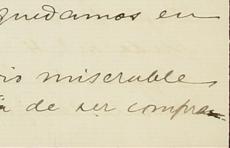 quedamos en
io miserable
a de ser compra-